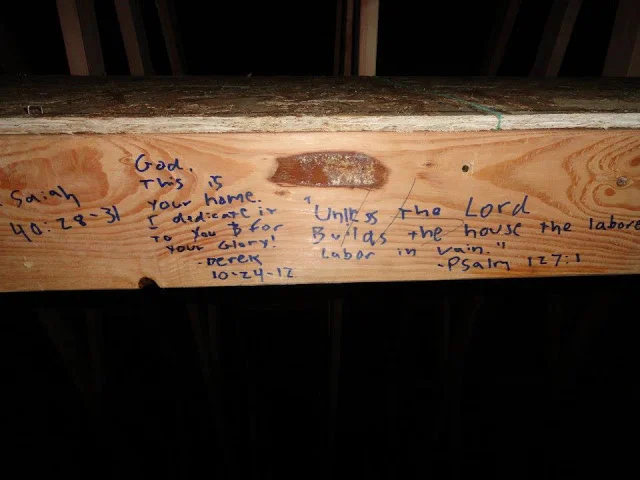 Saiah
40:28-31
God,
This is
your home.
I dedicate it
to you & for
your Glory!
-Derek
10-24-12
"Unless the Lord
Builds the house the labore
Labor in vain."
-Psalm 127:1